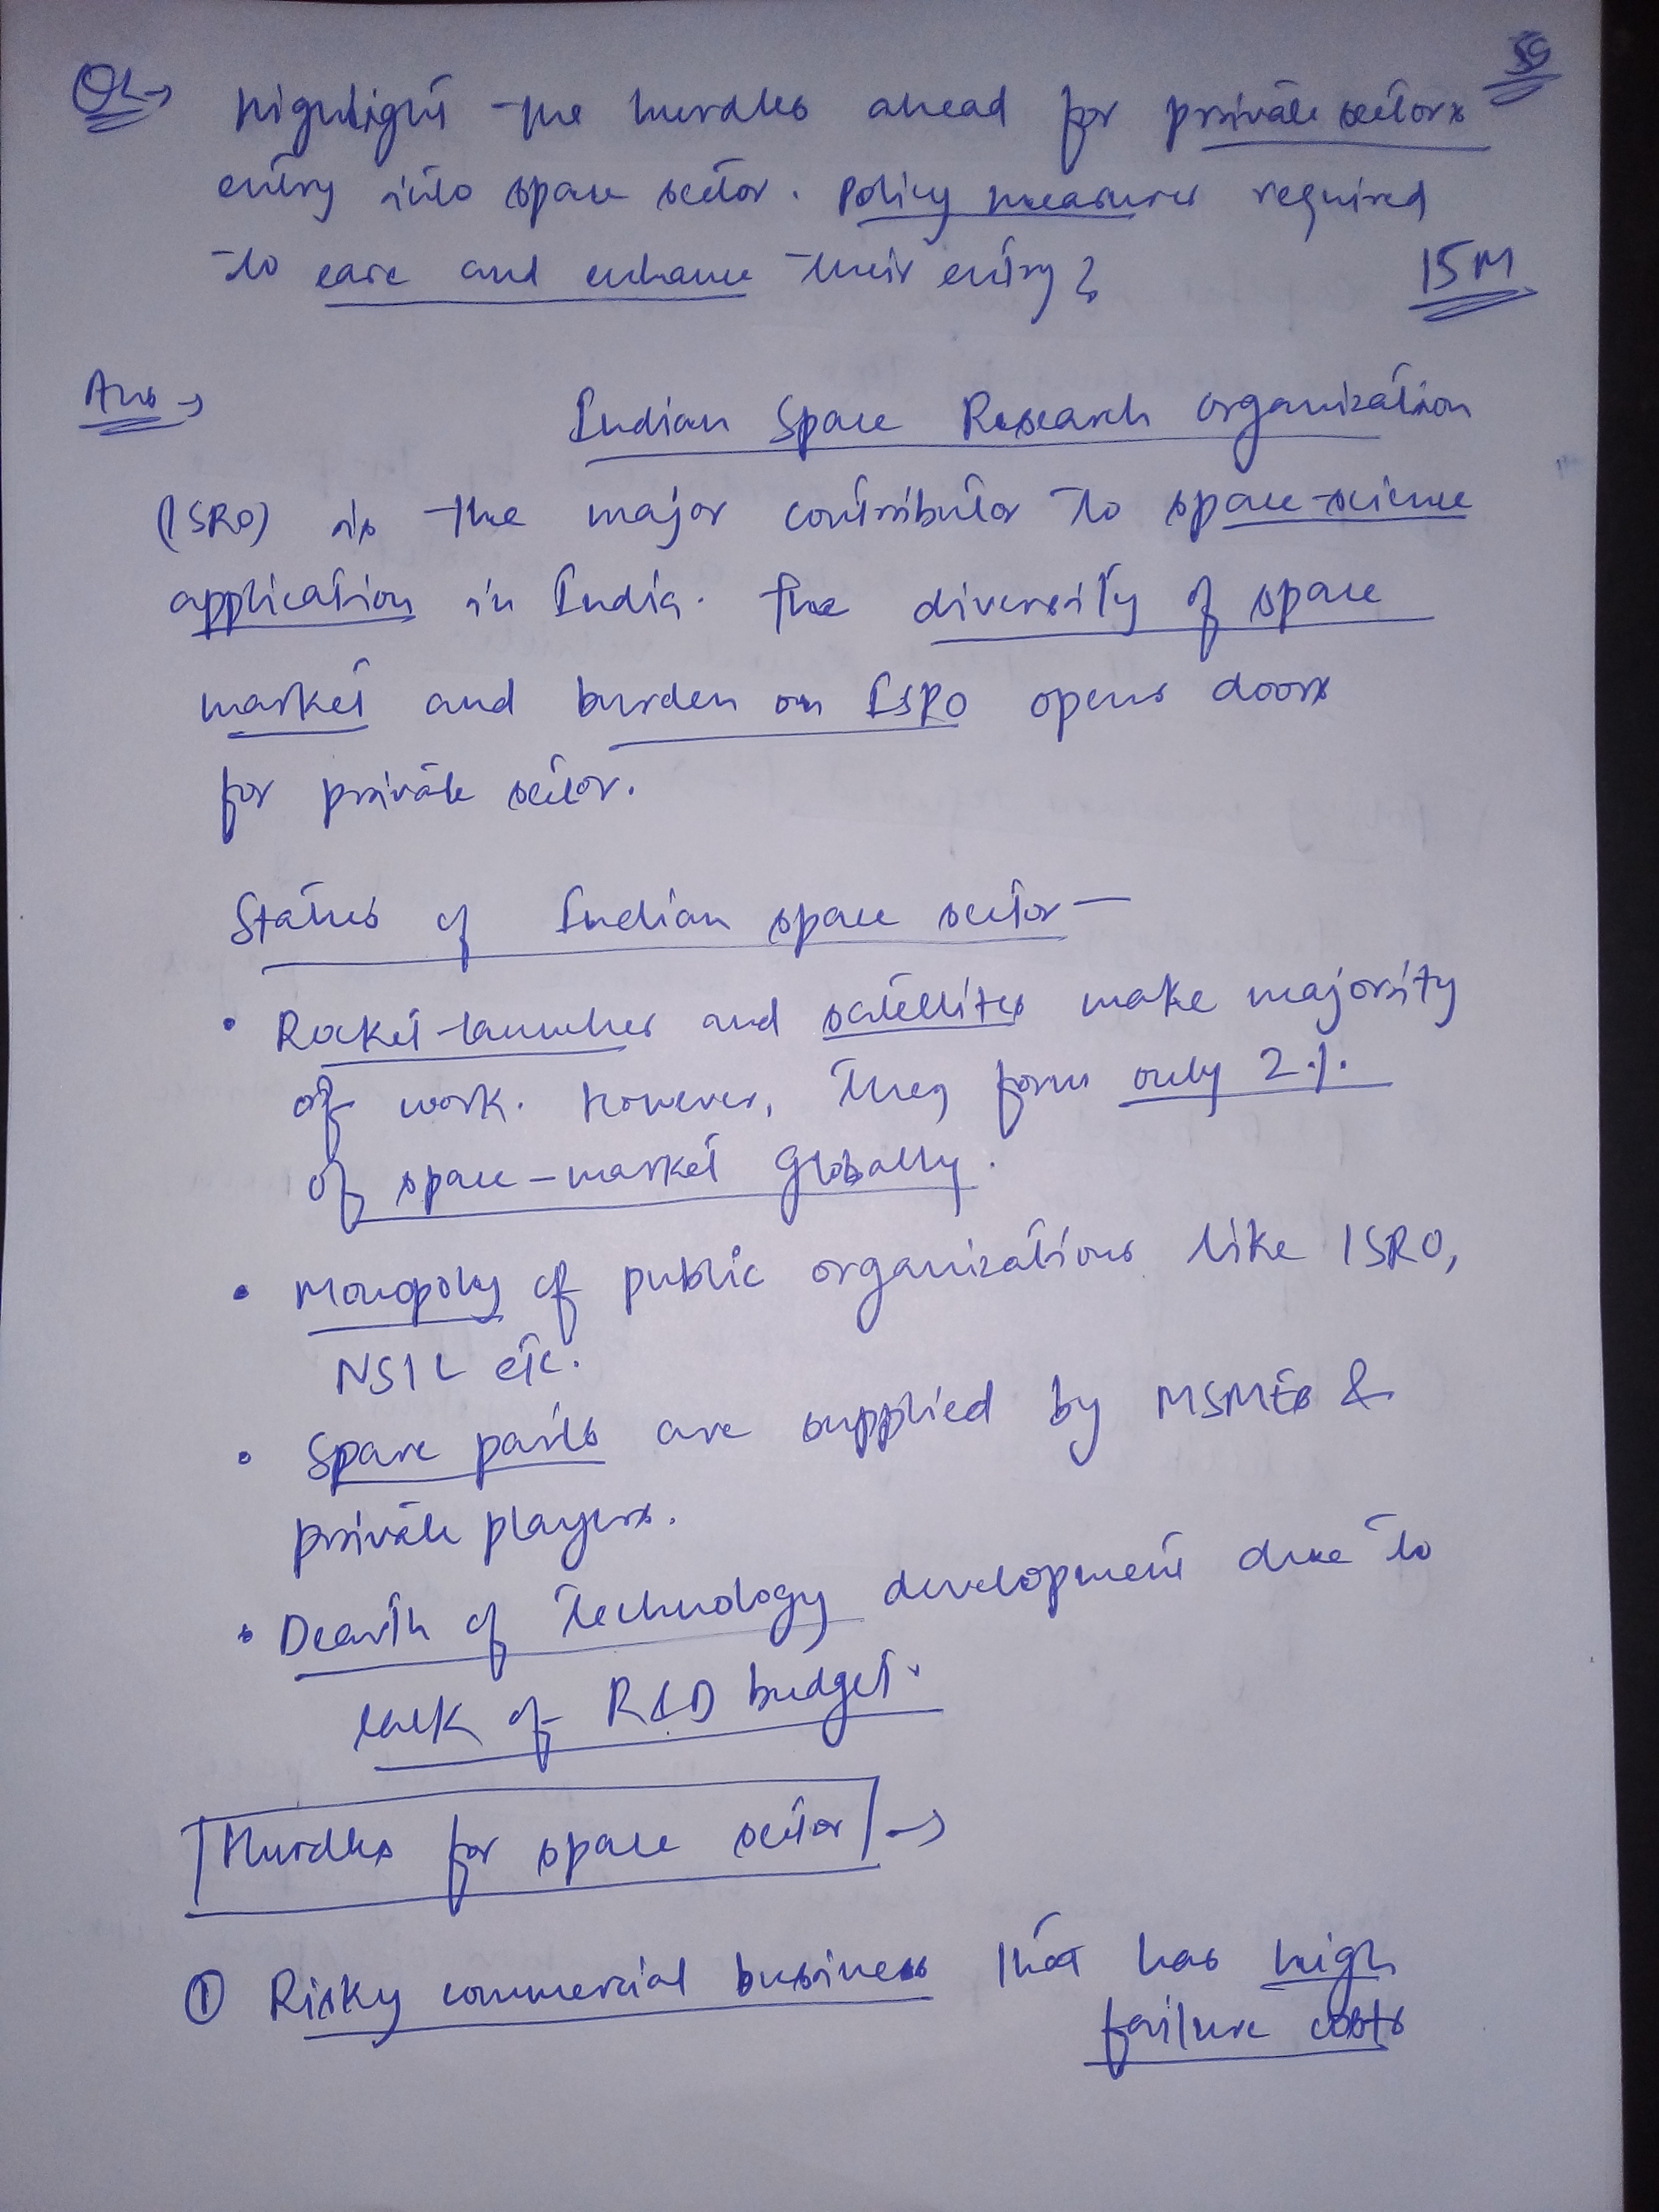 Highlight the hurdles ahead for private sectors
entry into space sector. Policy measures required
to ease and enhance their entry?
15M
Ans →
Indian Space Research Organization
(ISRO) is the major contributor to space-science
application in India. The diversity of space
market and burden on ISRO opens doors
for private sector.
Status of Indian space sector —
• Rocket-launcher and satellites make majority
of work. However, they form only 2%
of space-market globally.
• Monopoly of public organizations like ISRO,
NSIL etc.
• Spare parts are supplied by MSMEs &
private players.
• Dearth of technology development due to
lack of R&D budget.
Hurdles for space sector →
① Risky commercial business that has high
failure costs